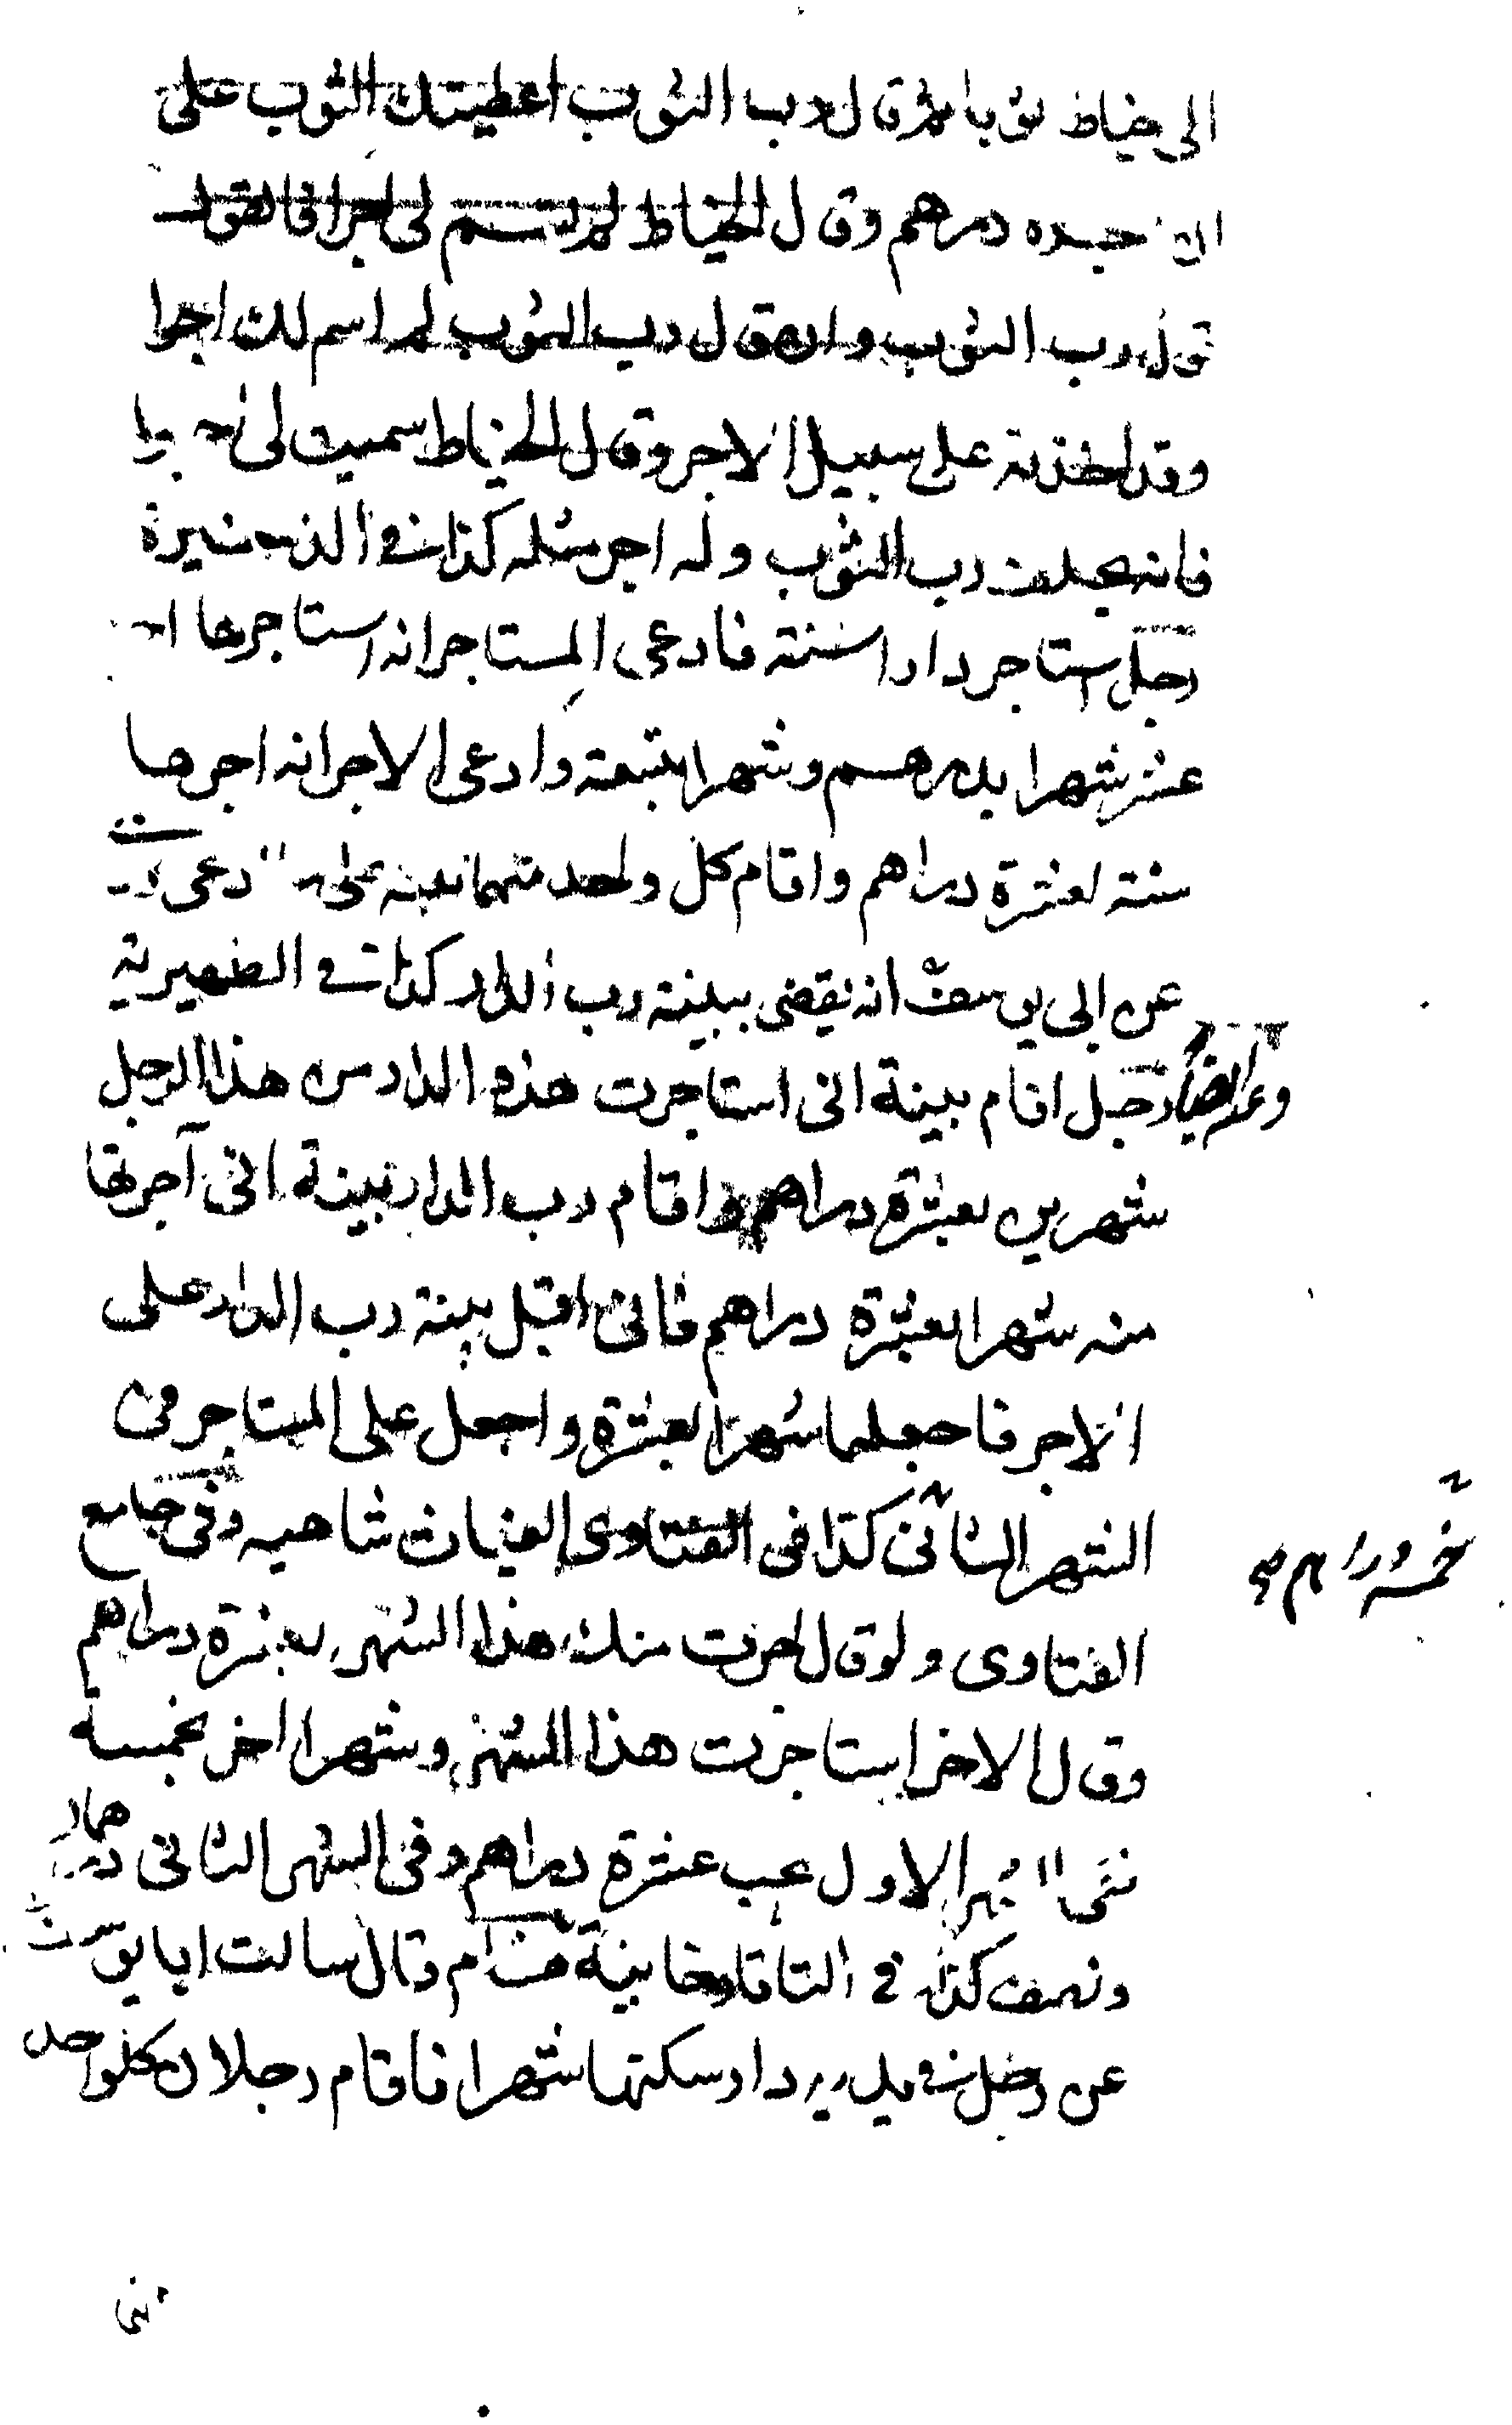 الى خياط ثوبا ثم قال رب الثوب اعطيتك الثوب على
دراهم وقال الخياط لم تسم لى اجرا فالقول
قول رب الثوب وان قال رب الثوب لم اسم لك اجرا
وقد اخذته على سبيل الاجر وقال الخياط سميت لى اجرا
فانه يحلف رب الثوب وله اجر مثله كذا فى الذخيرة
رجل استاجر دارا سنة فادعى المستاجر انه استاجرها احد
عشر شهرا بدرهم وشهرا بتسعة وادعى الاجر انه اجرها
سنة بعشرة دراهم واقام كل واحد منهما بينة على ادعى
عن ابى يوسف انه يقضى ببينة رب الدار كذا فى الظهيرية
وعنه ايضا رجل اقام بينة انى استاجرت هذه الدار من هذا الرجل
شهرين بعشرة دراهم واقام رب الدار بينة انى آجرتها
منه شهرا بعشرة دراهم فانى اقبل بينة رب الدار على
الاجر فاجعلها شهرا بعشرة واجعل على المستاجر فى
الشهر الثانى كذا فى الفتاوى الغياث شاهيه وفى جامع
خمسة دراهم صح
الفتاوى ولو قال اجرت منك هذا الشهر بعشرة دراهم
وقال الاخر استاجرت هذا الشهر وشهرا اخر بخمسة
ففى الشهر الاول يجب عشرة دراهم وفى الشهر الثانى درهمان
ونصف كذا فى التاتارخانية هشام قال سالت ابا يوسف
عن رجل فى يديه دار سكنها شهرا فاقام رجلان كل واحد